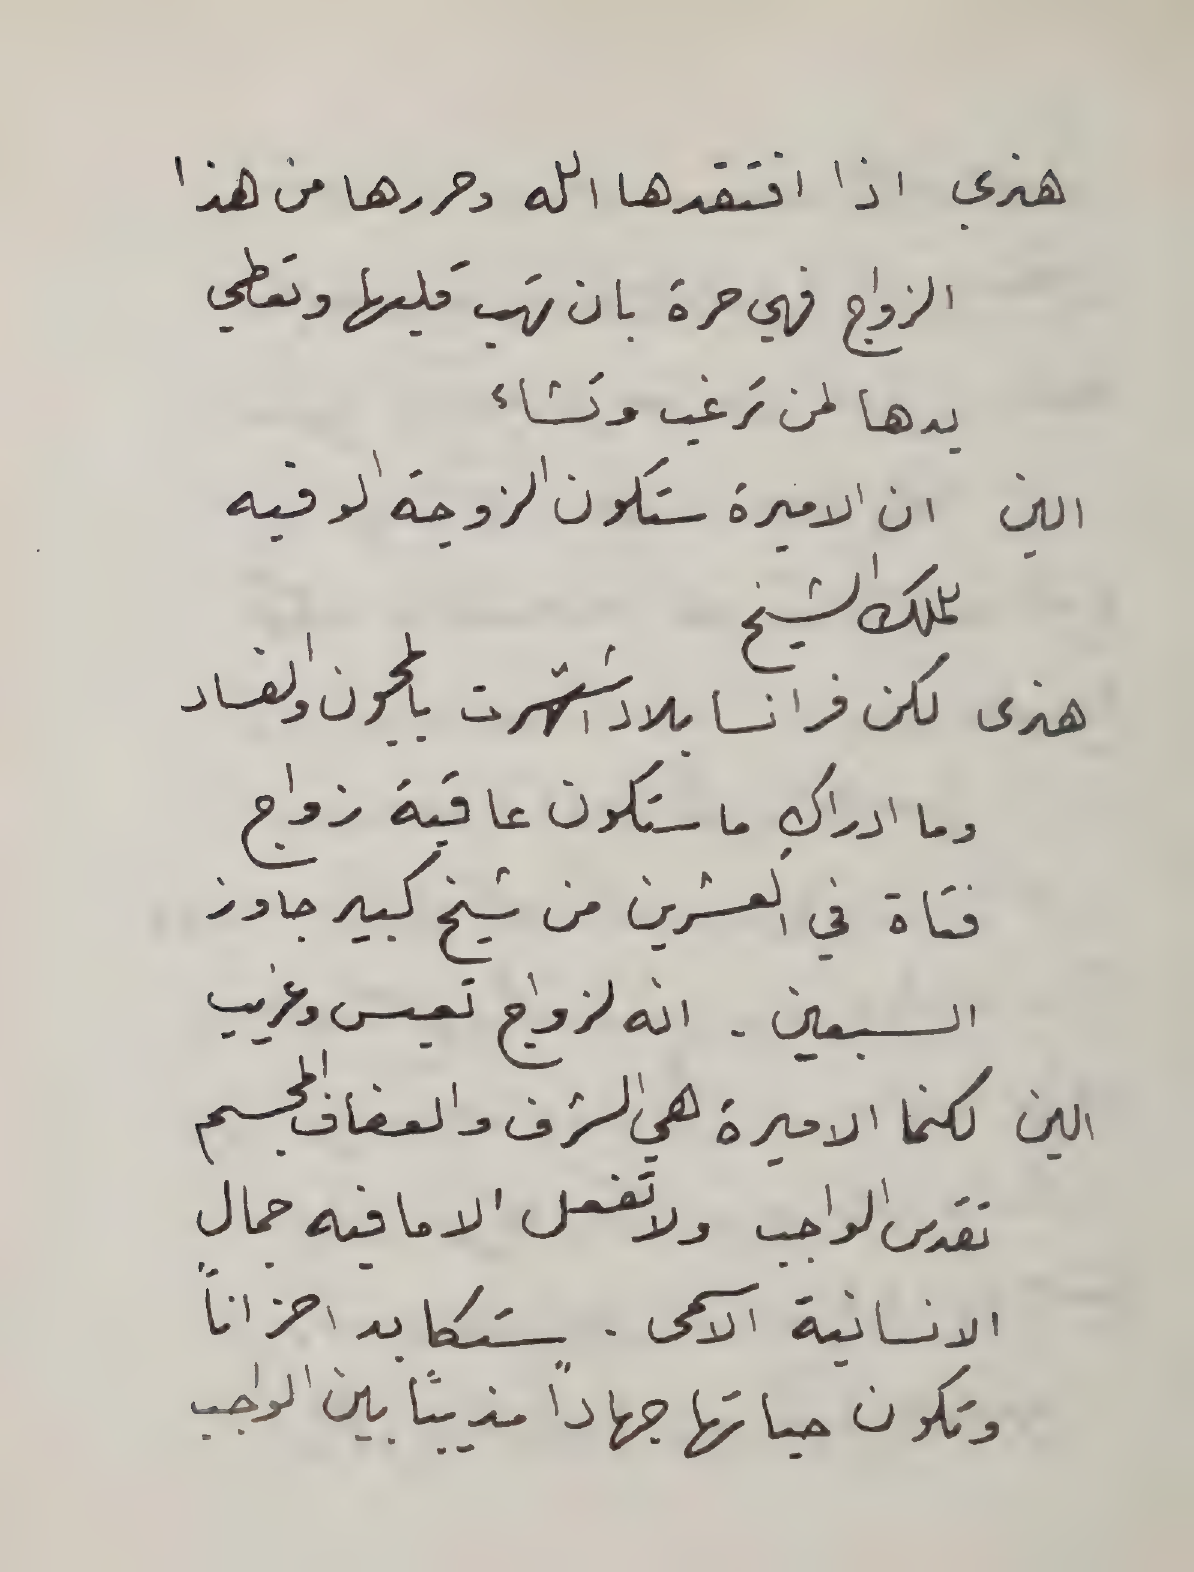 هنري اذا افتقدها الله وحررها من هذا
الزواج فهي حرة بان تهب قلبها وتعطي
يدها لمن ترغب وتشاء
الين ان الاميرة ستكون الزوجة الوفيه
للملك الشيخ
هنرى لكن فرانسا بلاد اشتهرت بالمجون والفساد
وما ادراك ما ستكون عاقبة زواج
فتاة في العشرين من شيخ كبير جاوز
السبعين . انه لزواج تعيس وغريب
الين لكنما الاميرة هي الشرف والعفاف المجسم
تقدس الواجب ولا تفعل الا ما فيه جمال
الانسانية الاسمى . ستكابد احزاناً
وتكون حياتها جهاداً مذيباً بين الواجب